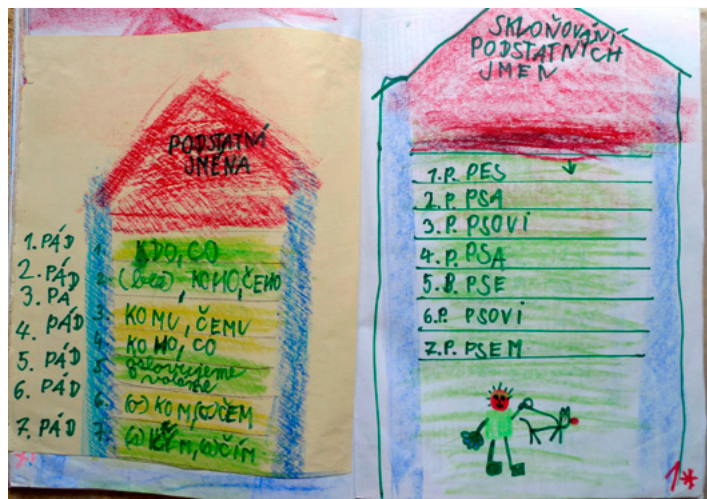 PODSTATNÁ
JMÉNA
1. PÁD
2. PÁD
3. PÁ
4. PÁD
5. PÁD
6. PÁD
7. PÁD
1. KDO, CO
2. (bez) KOHO, ČEHO
3. KOMU, ČEMU
4. KOHO, CO
5. oslovujeme
voláme
6. (o) KOM, (o) ČEM
7. (s) KÝM, (s) ČÍM
SKLOŇOVÁNÍ
PODSTATNÝCH
JMEN
1.P. PES
2.P. PSA
3.P. PSOVI
4.P. PSA
5.P. PSE
6.P. PSOVI
7.P. PSEM
1*